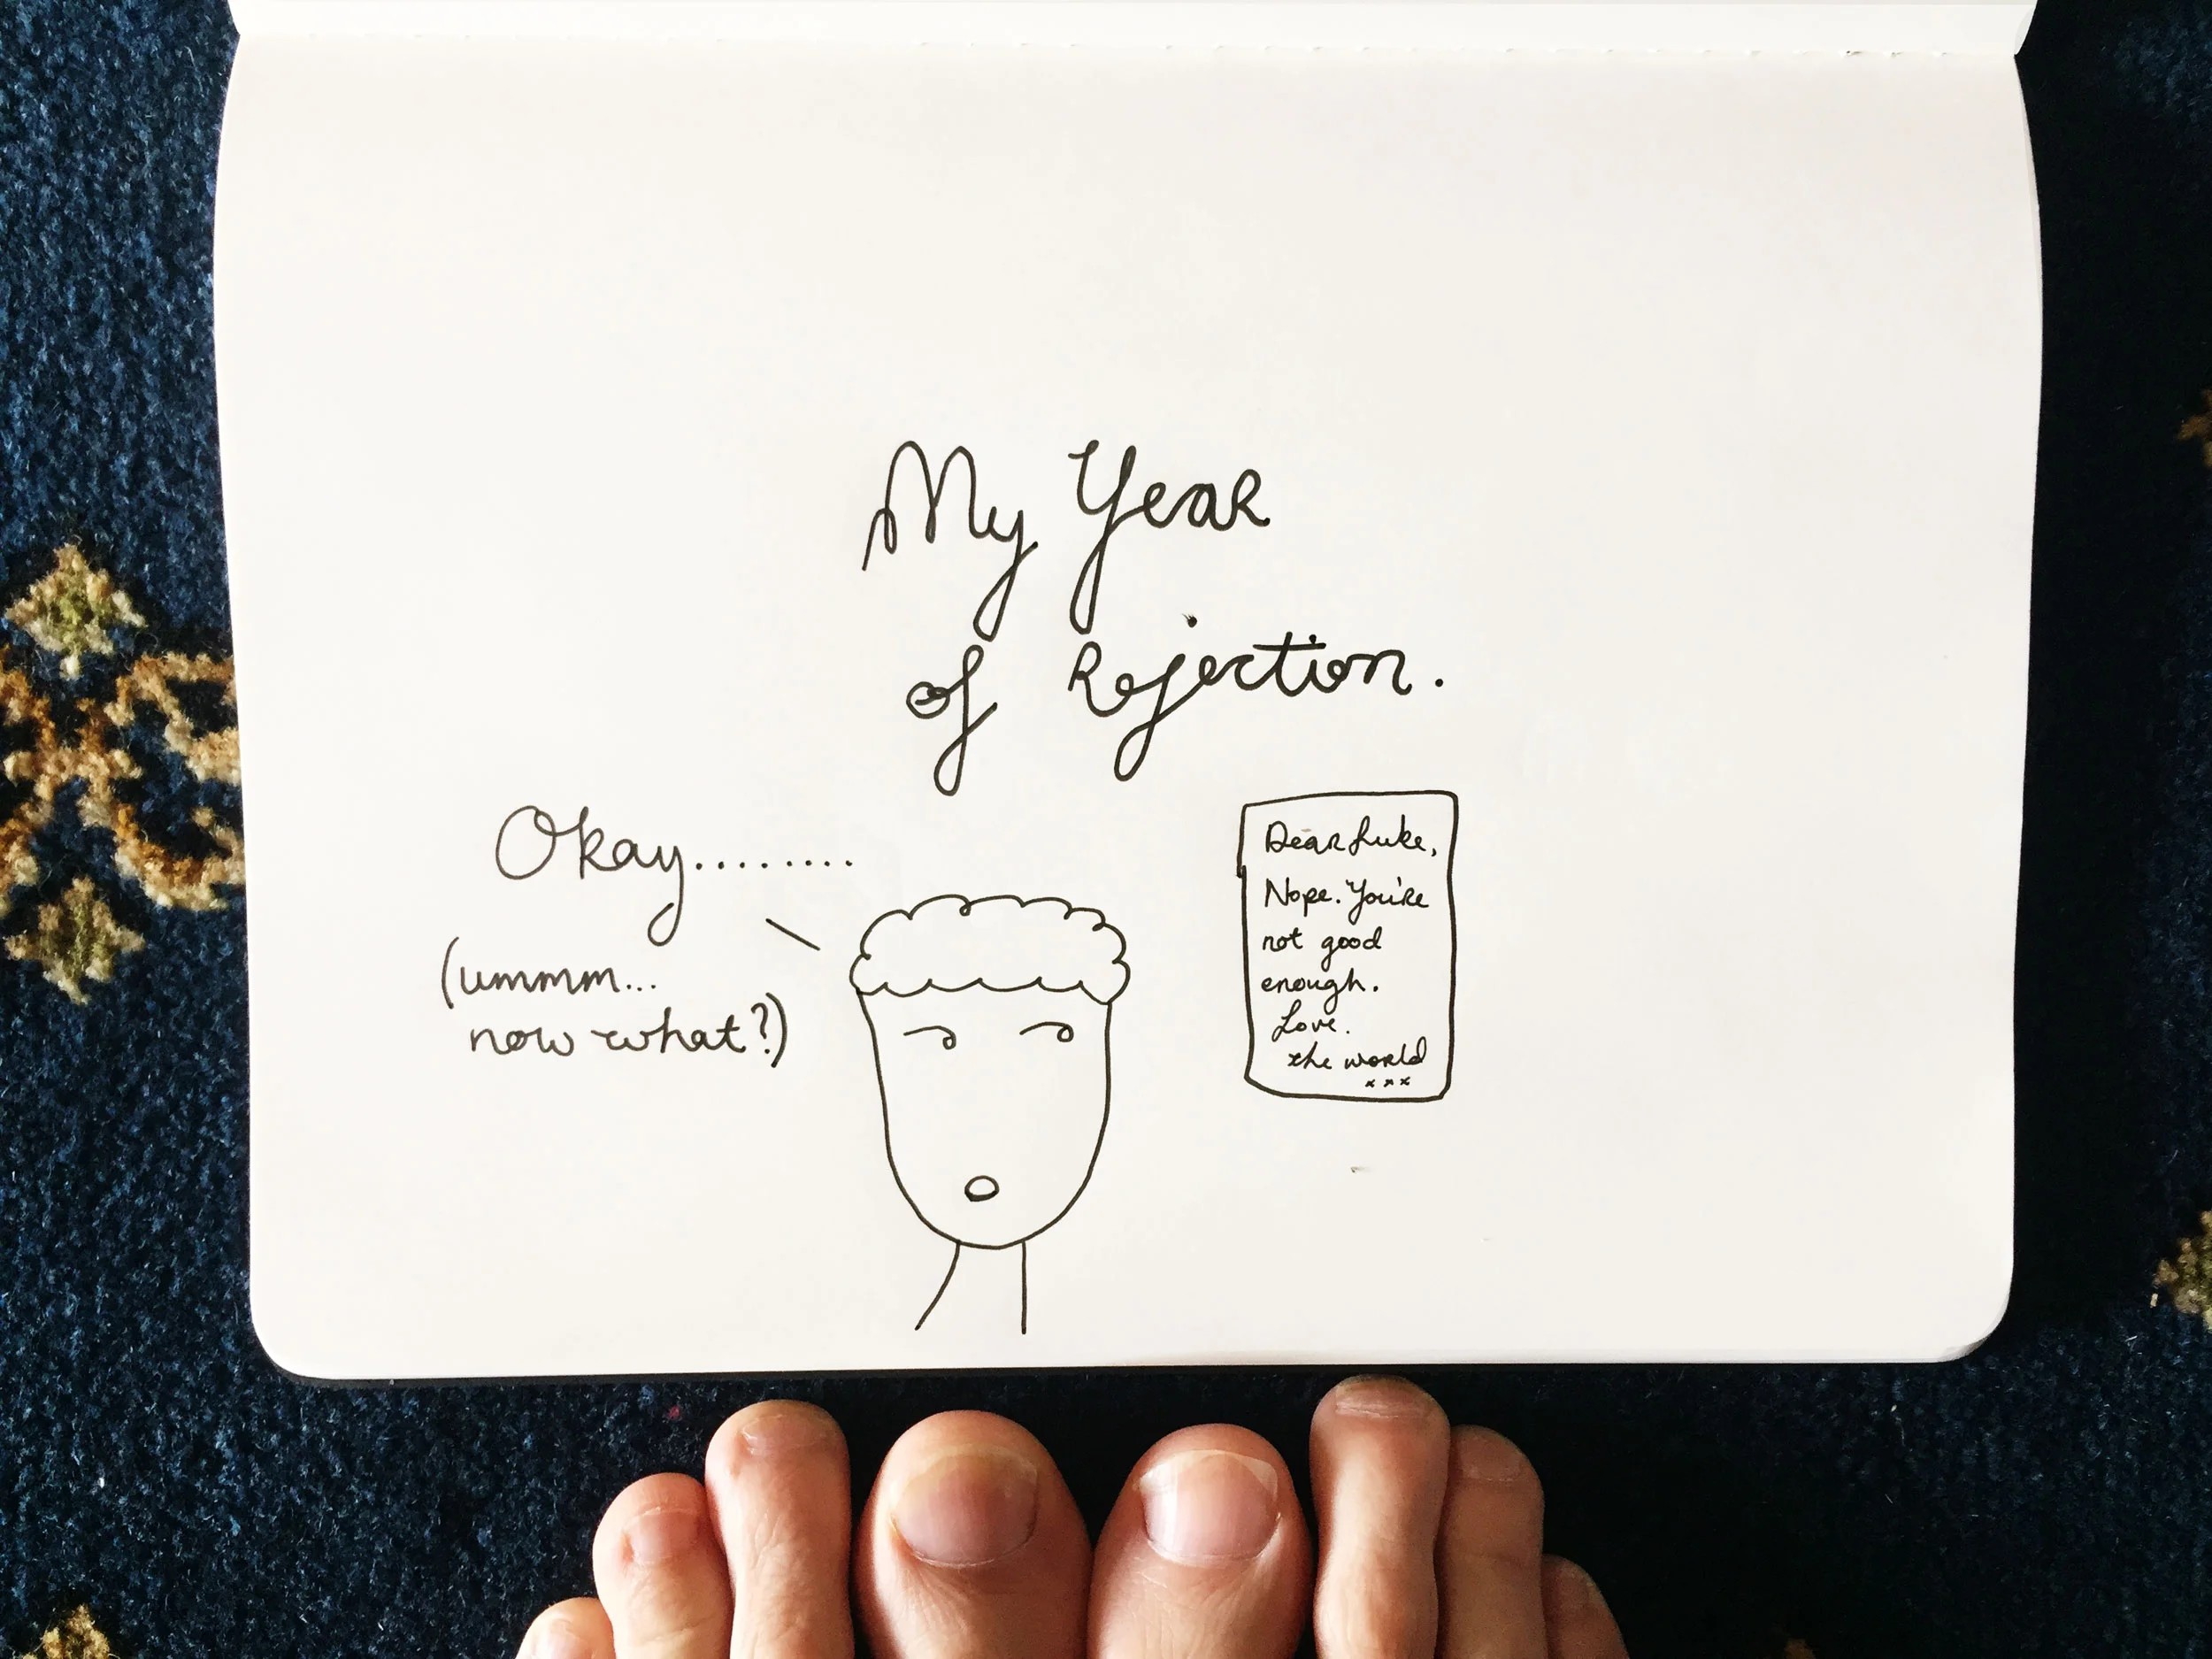 My Year
of Rejection.
Okay........
(ummm...
now what?)
Dear Luke,
Nope. You're
not good
enough.
Love.
the world
xxx